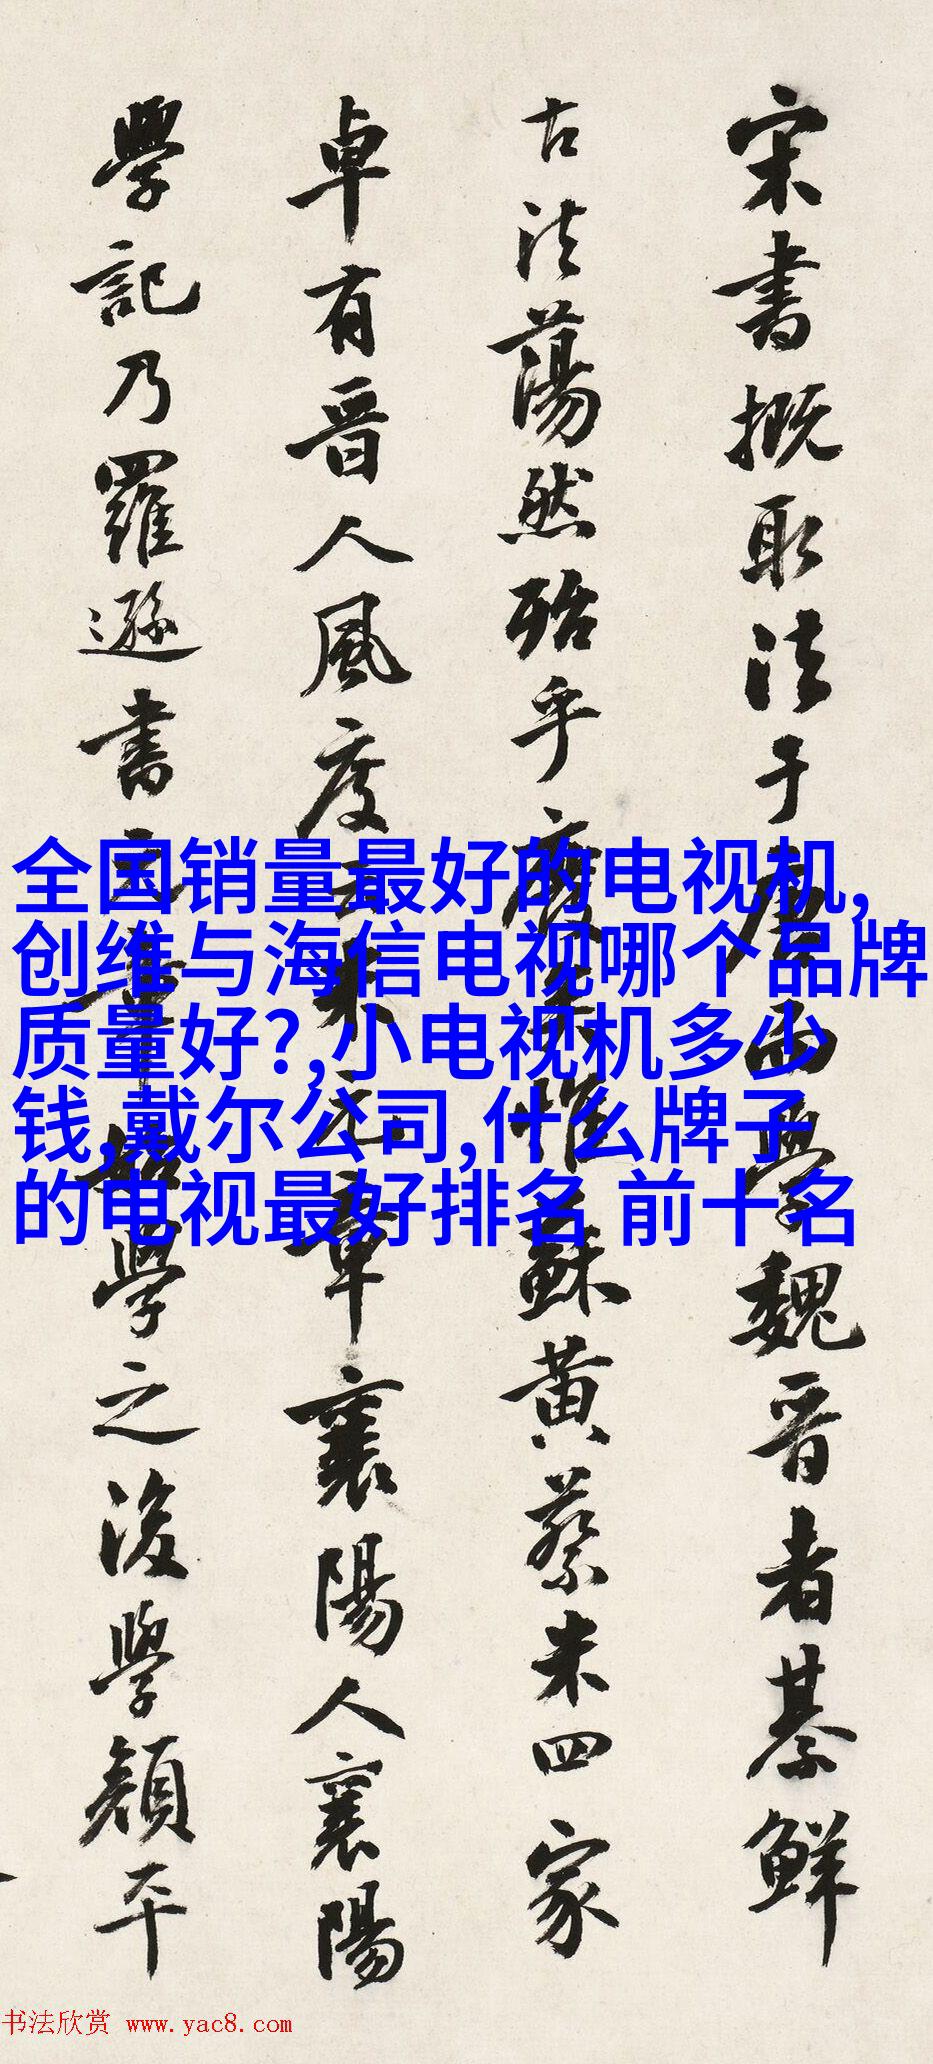 宋書概取法于唐而學魏晋者綦鮮
古法蕩然殆乎廢矣惟蘇黄蔡米四家
卓有晋人風度云米元章襄陽人襄陽
學記乃羅遜書元章始學之後學顔平
全国销量最好的电视机,
创维与海信电视哪个品牌
质量好?,小电视机多少
钱,戴尔公司,什么牌子
的电视最好排名 前十名
书法欣赏 www.yac8.com